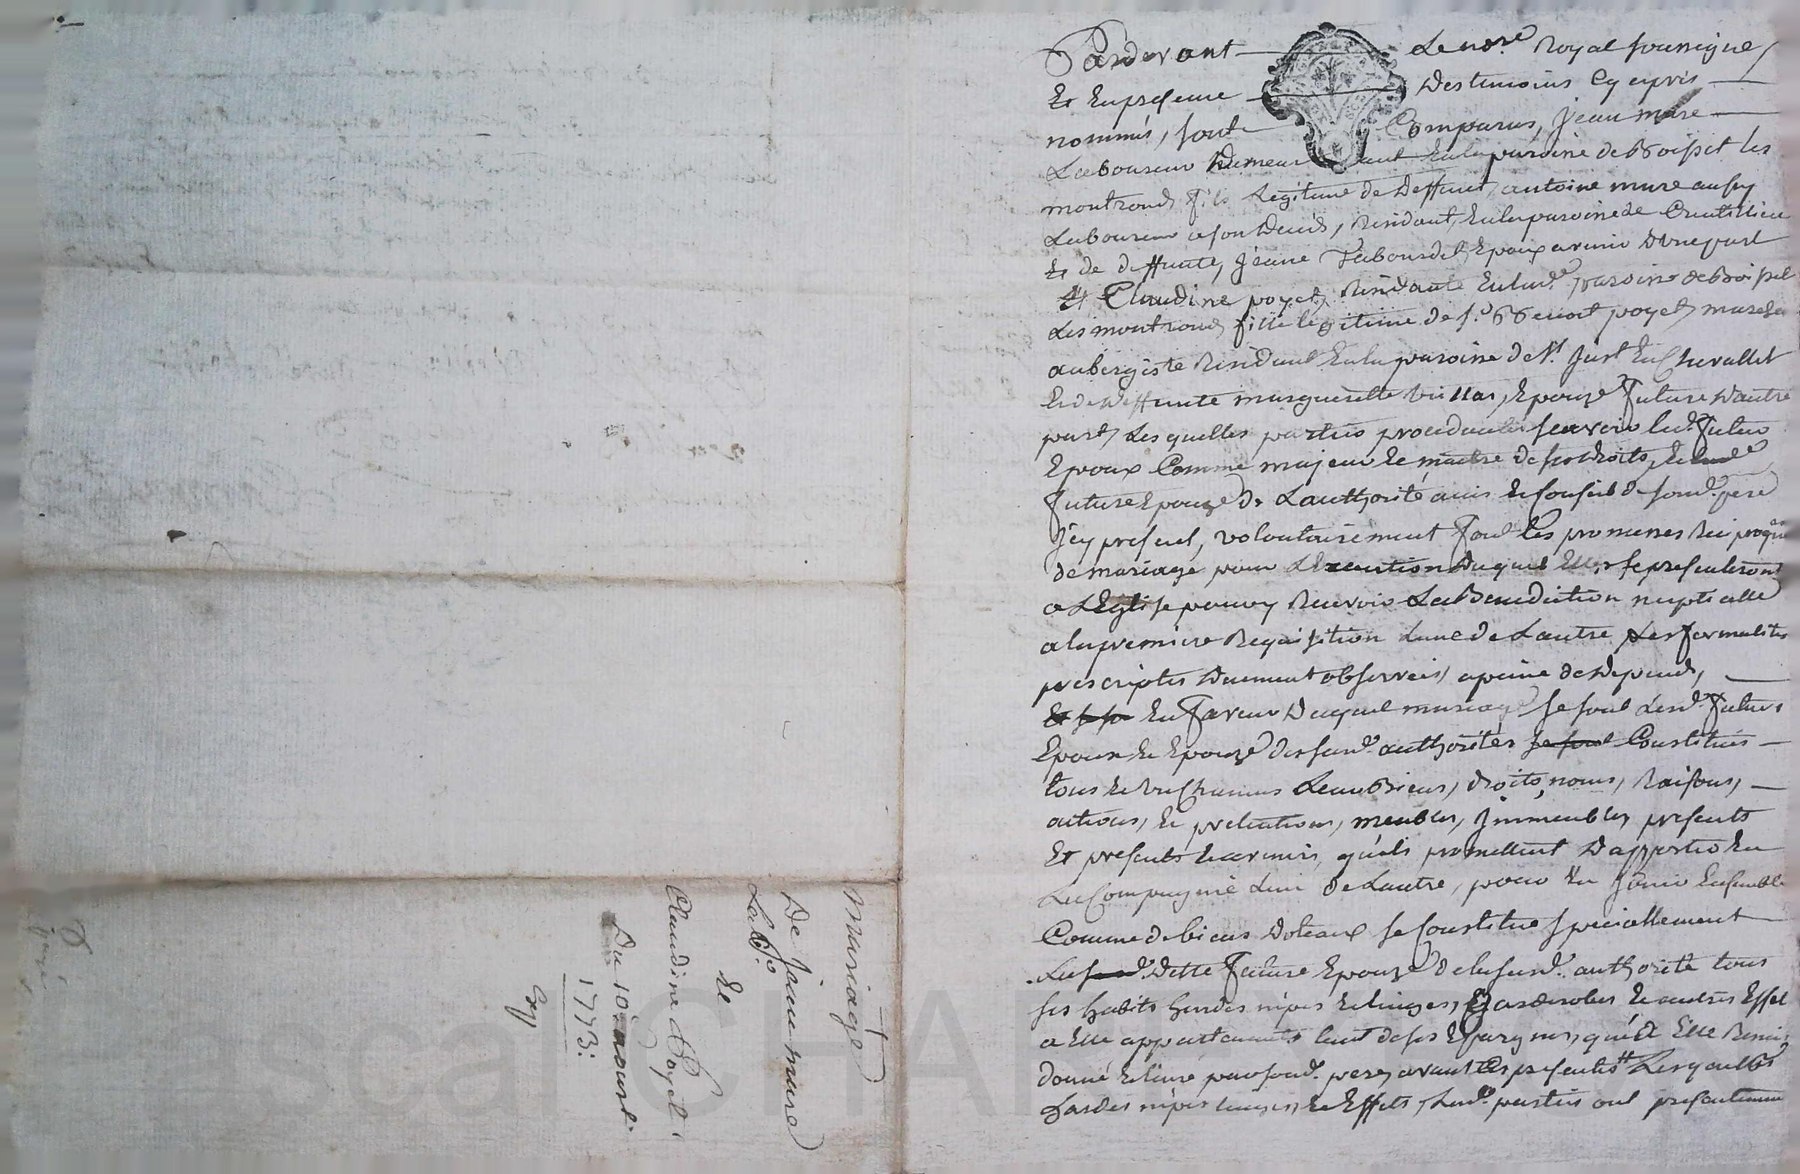 Pardevant Le no.re Royal soussigné,
Et En presence Des temoins Cy apprés
nommés, sont Comparus, Jean mure
Laboureur Demeurant En la paroisse de Boisset les
montrond, fils Legitime de Deffunt, antoine mure aussy
Laboureur a son Deces, Residant, En la paroisse de
Et de deffunte, Jeane Epoux avenir D'une part
Et Claudine poyet, Residante En lad.e paroisse de Boisset
Les montrond, fille legitime de s.r Benoit poyet, marchand
aubergiste Residant En la paroisse de S.t Just En Chevallet
Et de Deffunte marguerite Epouze future D'autre
part, Les quelles parties procedantes scavoir led. futur
Epoux Comme majeur et maitre de ses droits, et lad.e
future Epouze De L'authorité avis et conseil de sond. pere
J'cy present, volontairement font les promesses Reciproques
de mariage pour L'execution Duquel Elles se presenteront
a L'Eglise pour y Recevoir La Benediction nuptialle
a la premiere Requisition L'une de L'autre Les formalités
prescriptes Duement observées, a peine de Depends,
En faveur Duquel mariage se sont Lesd. futurs
Epoux et Epouze des susd. authorités se sont Constitués
tous et un Chacuns Leurs Biens, droits, noms, Raisons,
actions, et pretentions, meubles, Jmmeubles, presents
Et presents et avenir, qu'ils promettent D'apporter En
La Compagnie L'un de L'autre, pour En Jouir Ensemble
Comme de biens Doteaux se Constitue specialement
La Ditte future Epouze de la susd. authorité tous
ses habits hardes nipes et linges, garderobes et autres Effets
a Elle appartenants tant de ses Epargnes, que
donné et livré par sond. pere, avant Ces presentes Lesquelles
hardes nipes linges, et Effets, Lesd. parties ont presentement
mariage
De Jean mure
Lab.r
Et
Claudine Poyet
Du 10: aoust
1773: